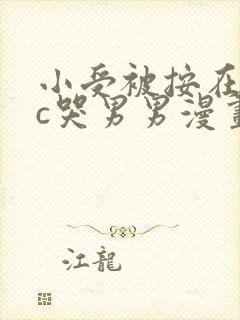 小受被按在
c哭男男漫畫
江龍